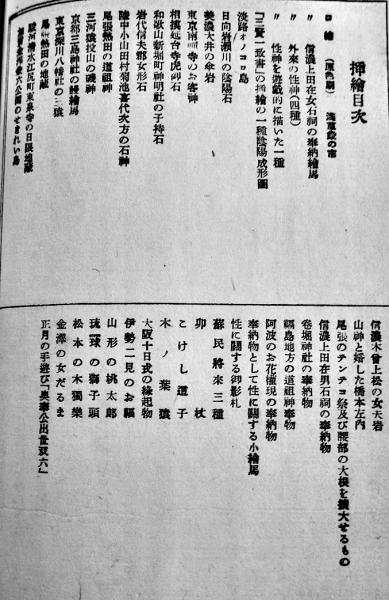 挿繪目次
口繪（原色刷） 淺草歳の市
信濃上田在女石祠の奉納繪馬
〃 外來の性神（四種）
〃 性神を遊戯的に描いた一種
「三賢一致書」の挿繪の一種陰陽成形圖
淡路オノコロ島
日向岩瀬川の陰陽石
美濃大井の傘岩
東京兩國寺のお客神
相模延台寺虎御石
和歌山新堀町神明社の子持石
岩代信夫郡女形石
陸中小山田村菊池喜代次方の石神
尾張熱田の道祖神
三河猿投山の磯神
京都三島神社の繪馬
東京深川八幡社の三猿
尾張熱田の地蔵
駿州清水江尻町東泉寺の日限地蔵
公園のせきれい島
信濃木曾上松の女夫岩
山神と婚した橋本左内
尾張のテンテコ祭及び腰部の大根を擴大せるもの
信濃上田在男石祠の奉納物
卷堀神社の奉納物
福島地方の道祖神奉物
阿波のお花權現の奉納物
奉納物として性に關する小繪馬
性に關する御影札
蘇民將來三種
卯杖
こけし這子
木ノ葉猿
大阪十日戎の緣起物
伊勢二見のお福
山形の桃太郎
琉球の獅子頭
松本の木獨樂
金澤の女だるま
正月の手遊び「奥奉公出世双六」